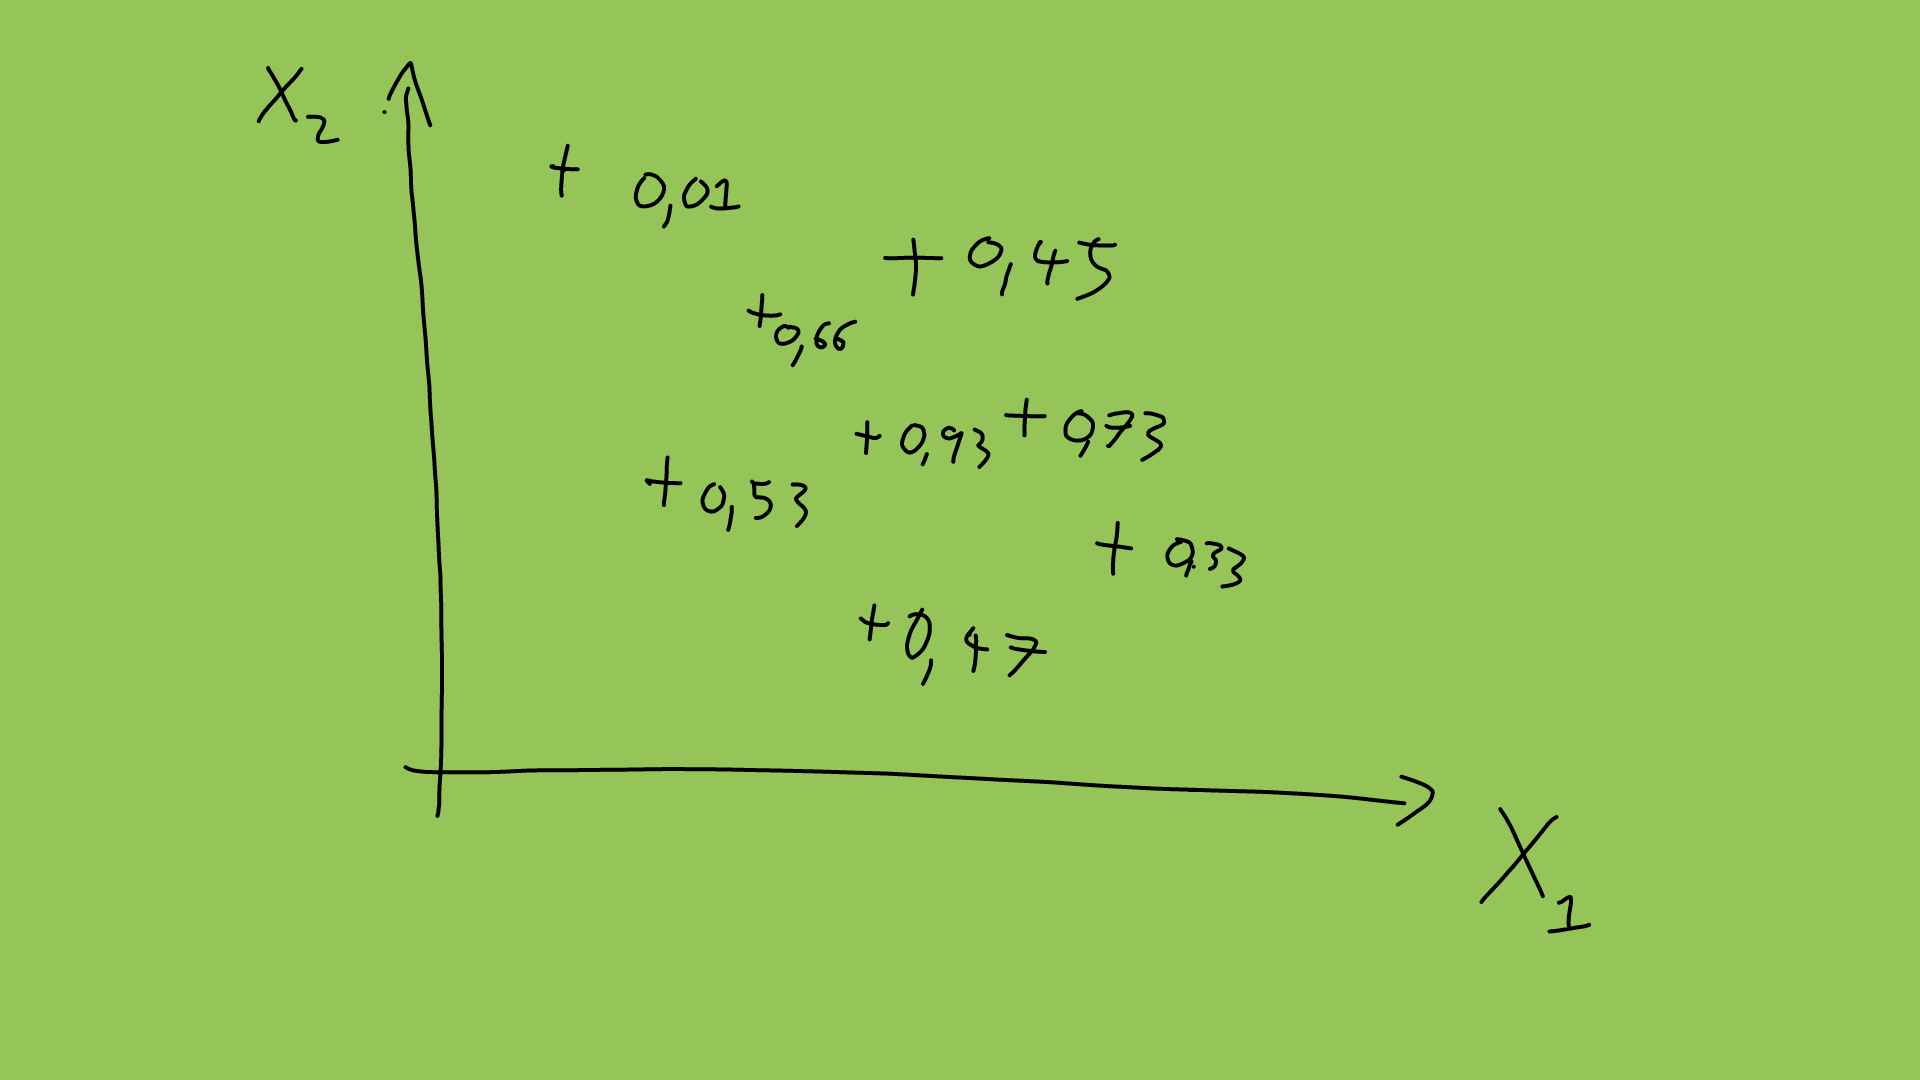 X₂
+ 0,01
+ 0,45
+ 0,66
+ 0,93
+ 0,73
+ 0,53
+ 0,33
+ 0,47
X₁